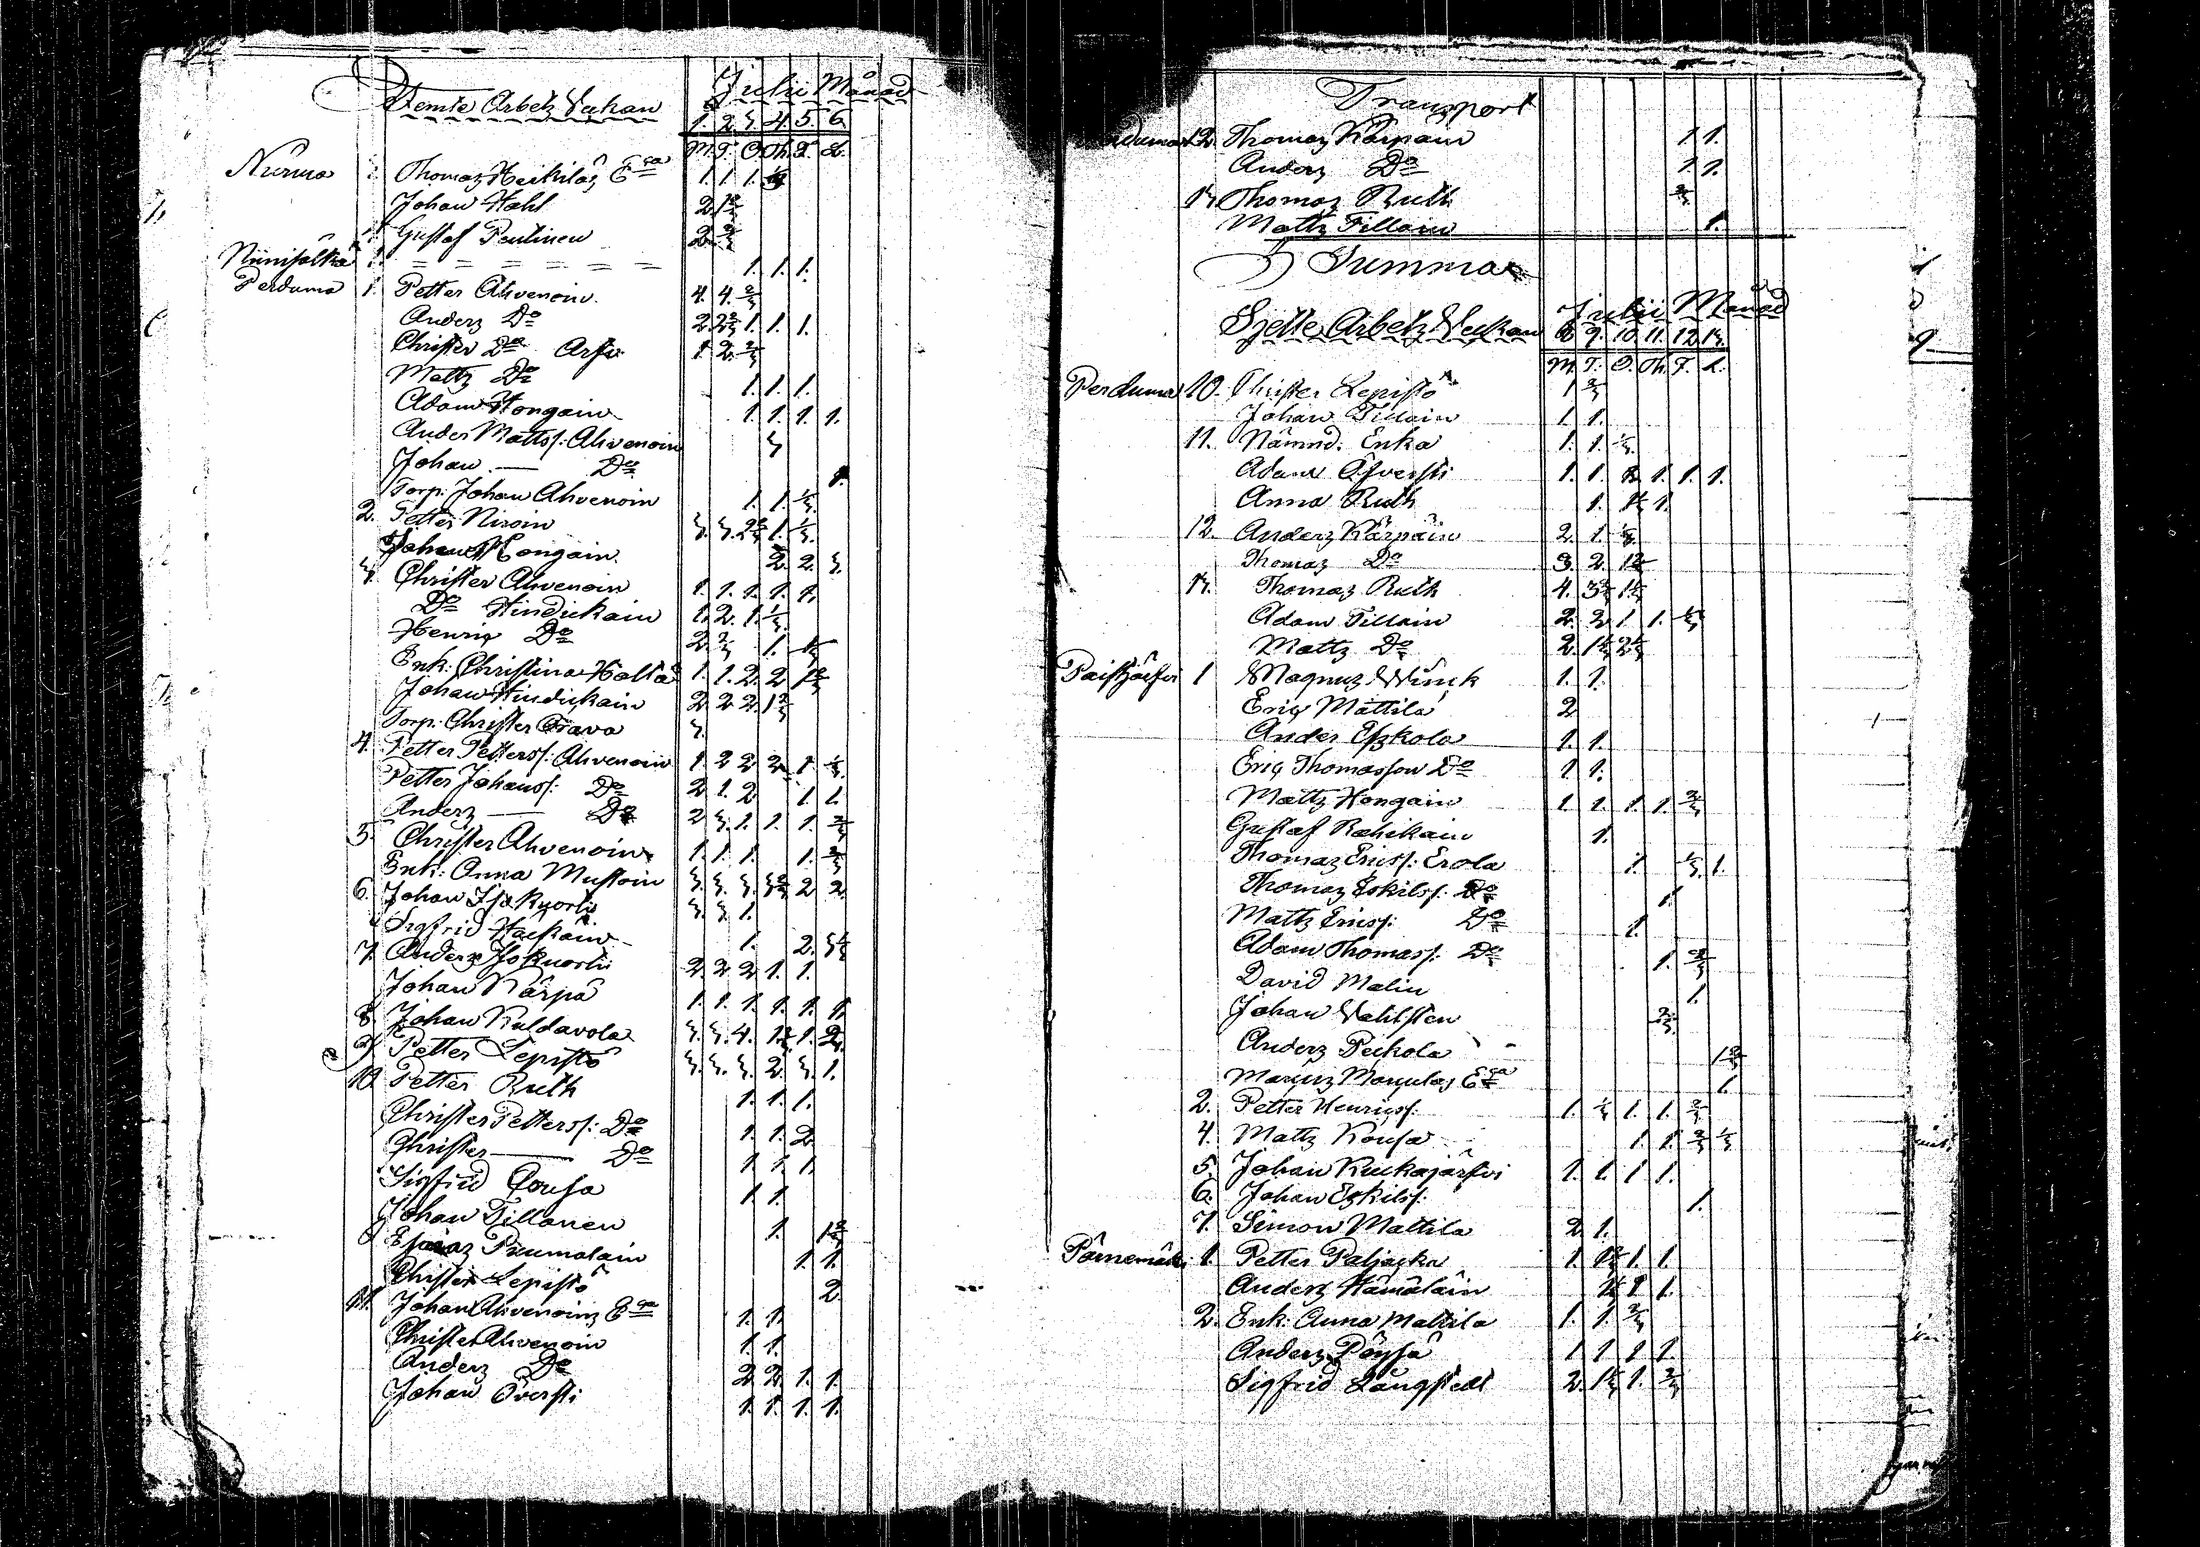 Femte Arbetz Veckan Julii Månad
1. 2. 3. 4. 5. 6.
M. T. O. Th. F. L.
Nurma Thomaz Heikiläz Egn 1. 1. 1.
Johan Hahl 2. 1 2/3
Gustaf Pentinen 2. 2/3
1. 1. 1.
Perduma 1. Petter Ahvenoin. 4. 4. 2/3
Anderz Do 2. 2 2/3 1. 1. 1.
Christer Do Arfv. 1. 2. 2/3
Mattz Do 1. 1. 1.
Adam Hongain 1. 1. 1. 1.
Ander Mattss: Ahvenoin 3
Johan — Do 1.
Torp: Johan Ahvenoin 1. 1. 1/3
2. Petter Niroin 3. 3. 2 2/3 1. 1/3
Johan Hongain. 2. 2. 3.
3. Christer Ahvenoin 1. 1. 1. 1. 1.
Do Hindickain 1. 2. 1. 1/3
Henriq Do 2. 2/3 1.
Enk: Christina Holta 1. 1. 2. 2. 1 2/3
Johan Hindickain 2. 2. 2. 1 2/3
Torp: Christer Trava 3.
4. Petter Petterss: Ahvenoin 1. 2 2 2 1.
Petter Johanss: Do 2. 1. 2 1. 1.
Anderz — Do 2 3. 1. 1. 1. 2/3
5. Christer Ahvenoin 1. 1. 1. 1. 2/3
Enk: Anna Mustoin 3. 3. 3. 3 2/3 2. 2.
6. Johan Isokuorti 3. 3. 1.
Sigfrid Hackain 1. 2.
7. Anderz Isokuorti 2. 2. 2. 1. 1.
Johan Kärpä 1. 1. 1. 1. 1. 1.
8. Johan Kuldavola 3. 3. 4. 1. 2.
9. Petter Lepistö 3. 3. 3. 2. 3. 1.
10 Petter Ruth 1. 1. 1.
Christer Petterss: Do 1. 1. 2.
Christer — Do 1. 1. 1.
Sigfrid Cousa 1. 1.
Johan Tillanen 1. 1 2/3
Esaiaz Puumalain 1. 1.
Christer Lepistö 2.
11. Johan Ahvenoinz Egn 1. 1.
Christer Ahvenoin 1. 1.
Anderz Do 2. 2. 1. 1.
Johan Översti 1. 1. 1. 1.
Transport
12. Thomaz Kärpäin 1. 1.
Anderz Do 1. 1.
13 Thomaz Ruth 2/3
Mattz Tillain 1.
Summa
Sjette Arbetz Veckan Julii Månad
8. 9. 10. 11. 12. 13.
M. T. O. Th. F. L.
Perduma 10. Christer Lepistö 1 2/3
Johan Tillain 1. 1.
11. Nämnd. Enka 1. 1. 1/3
Adam Öfversti 1. 1. 1. 1. 1.
Anna Ruth 1. 1 1/3 1.
12. Anderz Kärpäin 2. 1.
Thomaz Do 3. 2. 1 2/3
13. Thomaz Ruth 4. 3 2/3 1 1/3
Adam Tillain 2. 2 1 1. 1/3
Mattz Do 2. 1 1/3 2 1/3
Paistjärfvi 1 Magnuz Winck 1. 1.
Eriq Mattila 2
Ander Eskola 1. 1.
Eriq Thomasson Do 1 1.
Mattz Hongain 1. 1. 1. 1. 2/3
Gustaf Rahikain 1.
Thomaz Ericss: Erola 1. 1/3 1.
Thomaz Eskilss: Do 1.
Mattz Ericss: Do 1.
Adam Thomass: Do 1. 2/3
David Malin 1.
Johan Vahlsten 2/3
Anderz Peckola 1 2/3
Egn 1.
2. Petter Henricss: 1. 1/3 1. 1. 2/3
4. Mattz Kousa 1. 1. 2/3 1/3
5. Johan Kuckajärfvi 1. 1. 1. 1.
6. Johan Eskilss: 1.
7. Simon Mattila 2. 1.
Pärnemäki 1. Petter Paljacka 1. 1 2/3 1. 1
Anderz Hämäläin 1 1.
2. Enk: Anna Mattila 1. 1. 2/3
Anderz Pöysä 1 1 1 1.
Sigfrid Långstedt 2. 1 2/3 1. 2/3